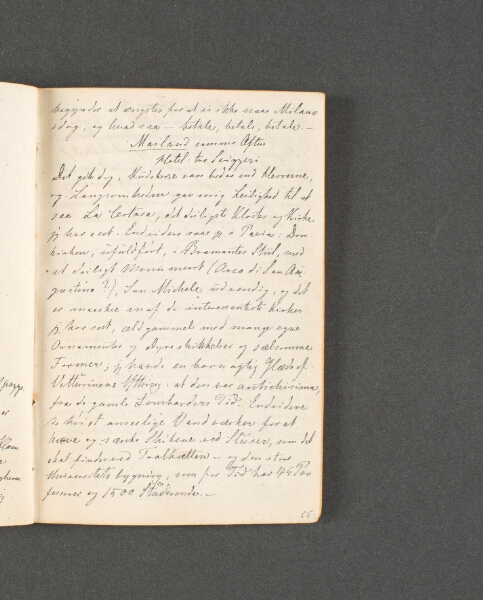 begynder at ængstes for at vi ikke naae Milano
idag, og hvad saa — betale, betale, betale. —
Mailand samme Aften
Hotel tre Svizzeri
Det gik dog, Kudskene vare bedre end Hestene,
og Langsomheden gav mig Leilighed til at
see La Certosa, det deiligste Kloster og Kirke
jeg har seet. Endvidere saae jeg i Pavia: Dom
kirken, ufuldført, i Bramantes Stiil, med
et deiligt Monument (Arco di San Au
gustino?), San Michele udvendig, og det
er maaskee en af de interessanteste Kirker
jeg har seet, ældgammel med mange egne
Ornamenter og Dyreskikkelser og selsomme
Former; jeg havde en barnagtig Glæde af
Vetturinens Yttring: at den var antichissima,
fra de gamle Lombarders Tid. Endvidere
høist anseelige Vandværker for at
hæve og sænke Skibene ved Sluser, som det
skal findes ved Troalhætten — og den store
Universitetsbygning, som for Tid har 45 Pro
fessorer og 1500 Studerende. —
25